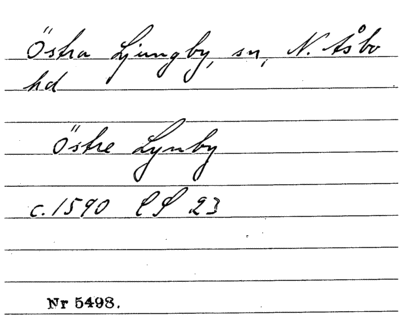 Östra Ljungby, sn, N. Åsbo
hd
Östre Lynby
c. 1590 LS 23
Nr 5498.